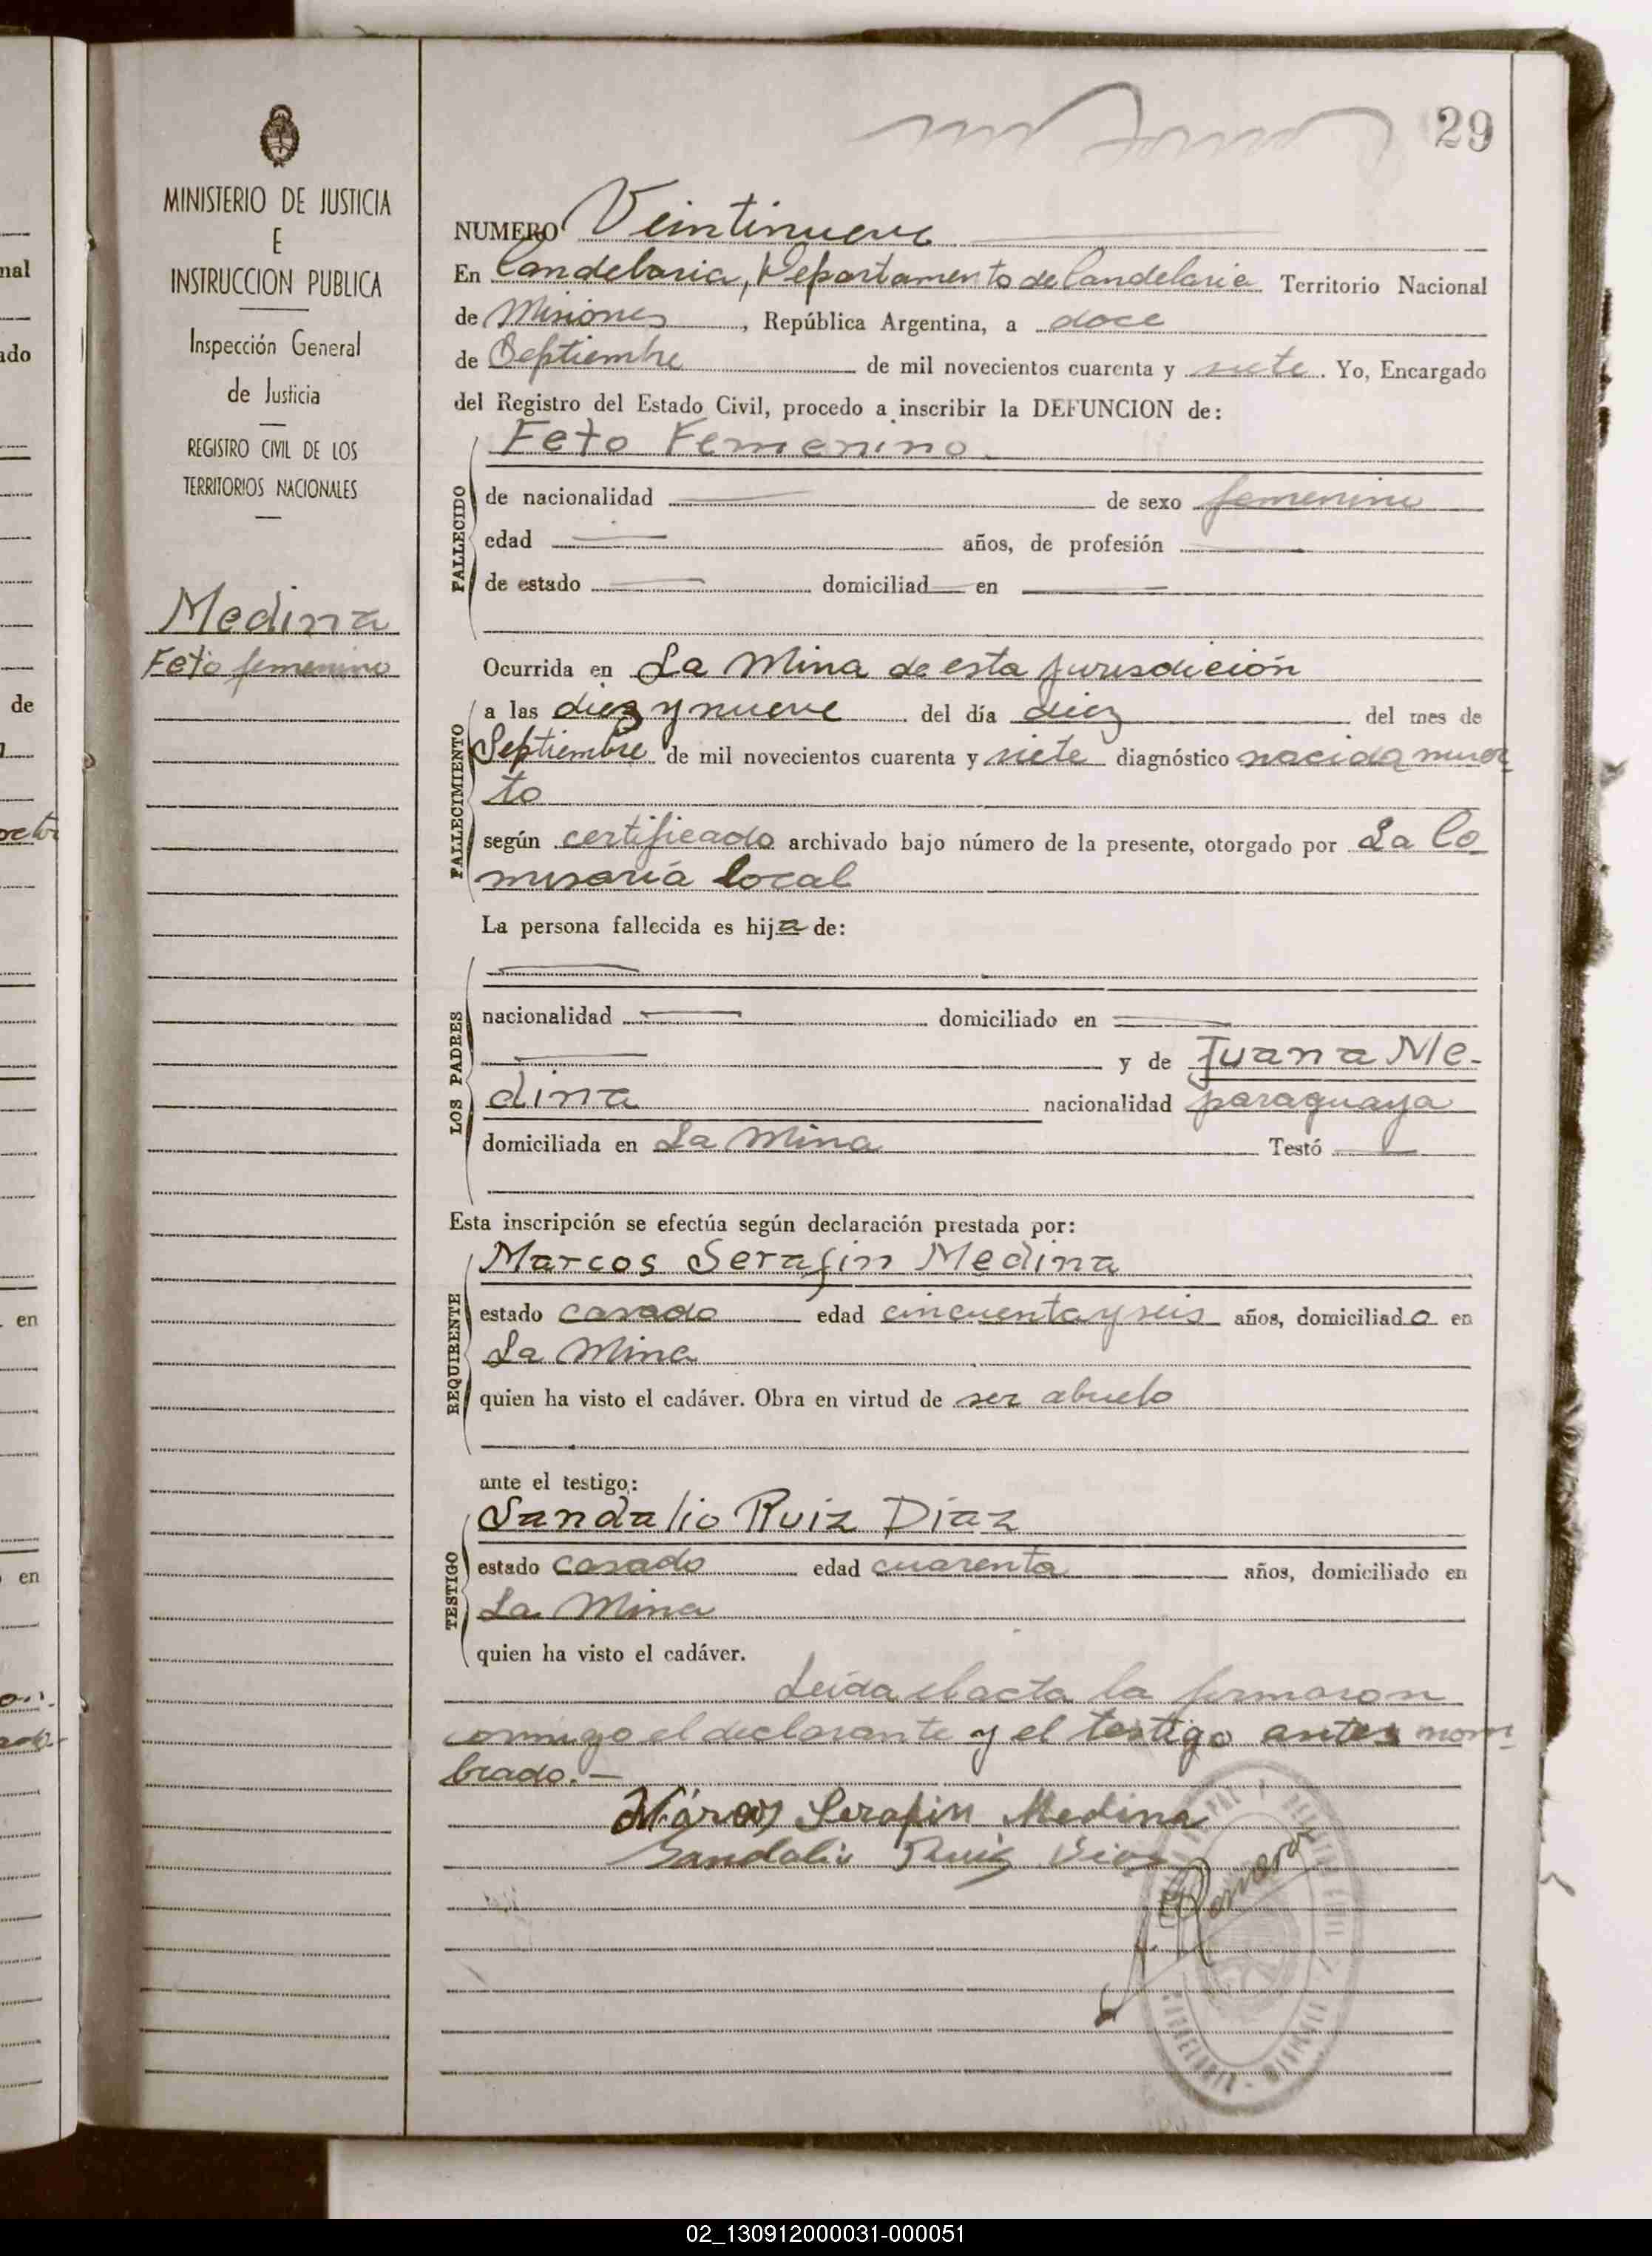 29
MINISTERIO DE JUSTICIA
E
INSTRUCCION PUBLICA
Inspección General
de Justicia
REGISTRO CIVIL DE LOS
TERRITORIOS NACIONALES
Medina
Feto femenino
NUMERO Veintinueve
En Candelaria, Departamento de Candelaria Territorio Nacional
de Misiones, República Argentina, a doce
de Septiembre de mil novecientos cuarenta y siete. Yo, Encargado
del Registro del Estado Civil, procedo a inscribir la DEFUNCION de:
Feto Femenino.
FALLECIDO
de nacionalidad de sexo femenino
edad años, de profesión
de estado domiciliad en
Ocurrida en La Mina de esta jurisdicción
FALLECIMIENTO
a las diez y nueve del día diez del mes de
Septiembre de mil novecientos cuarenta y siete diagnóstico nacida muer
to
según certificado archivado bajo número de la presente, otorgado por La Co
misaría local
La persona fallecida es hija de:
LOS PADRES
nacionalidad domiciliado en
y de Juana Me-
dina nacionalidad paraguaya
domiciliada en La Mina Testó
Esta inscripción se efectúa según declaración prestada por:
REQUIRENTE
Marcos Serafin Medina
estado casado edad cincuenta y seis años, domiciliado en
La Mina
quien ha visto el cadáver. Obra en virtud de ser abuelo
ante el testigo:
TESTIGO
Sandalio Ruiz Diaz
estado casado edad cuarenta años, domiciliado en
La Mina
quien ha visto el cadáver.
Leída el acta la firmaron
conmigo el declarante y el testigo antes nom
brado.-
Márcos Serafin Medina
Sandalio Ruiz Diaz
nal
ado
de
en
en
02_130912000031-000051